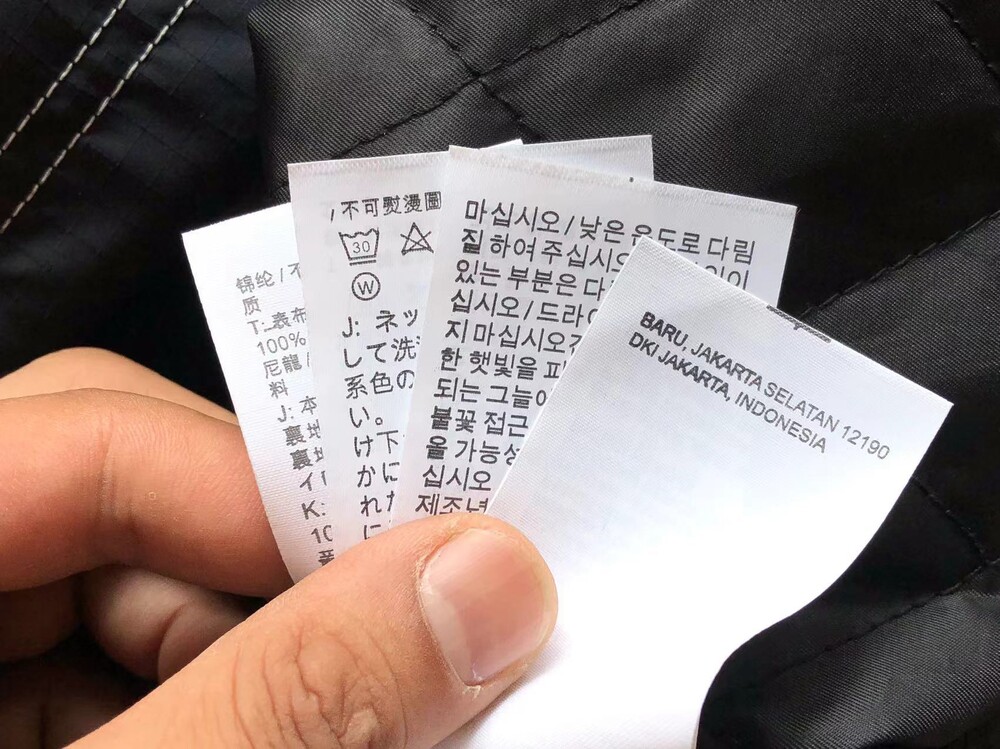 锦纶 / 不
质
T: 表布
100%
尼龍 /
料
J: 本
裏地
裏地
イ
K:
10
/ 不可熨燙圖
30
W
J: ネッ
して洗
系色の
い。
け下
かに
れた
に
마십시오 / 낮은 온도로 다림
질 하여 주십시오
있는 부분은 다
십시오 / 드라이
지 마십시오
한 햇빛을 피
되는 그늘
불꽃 접근
올 가능성
십시오
제조년
BARU, JAKARTA SELATAN 12190
DKI JAKARTA, INDONESIA